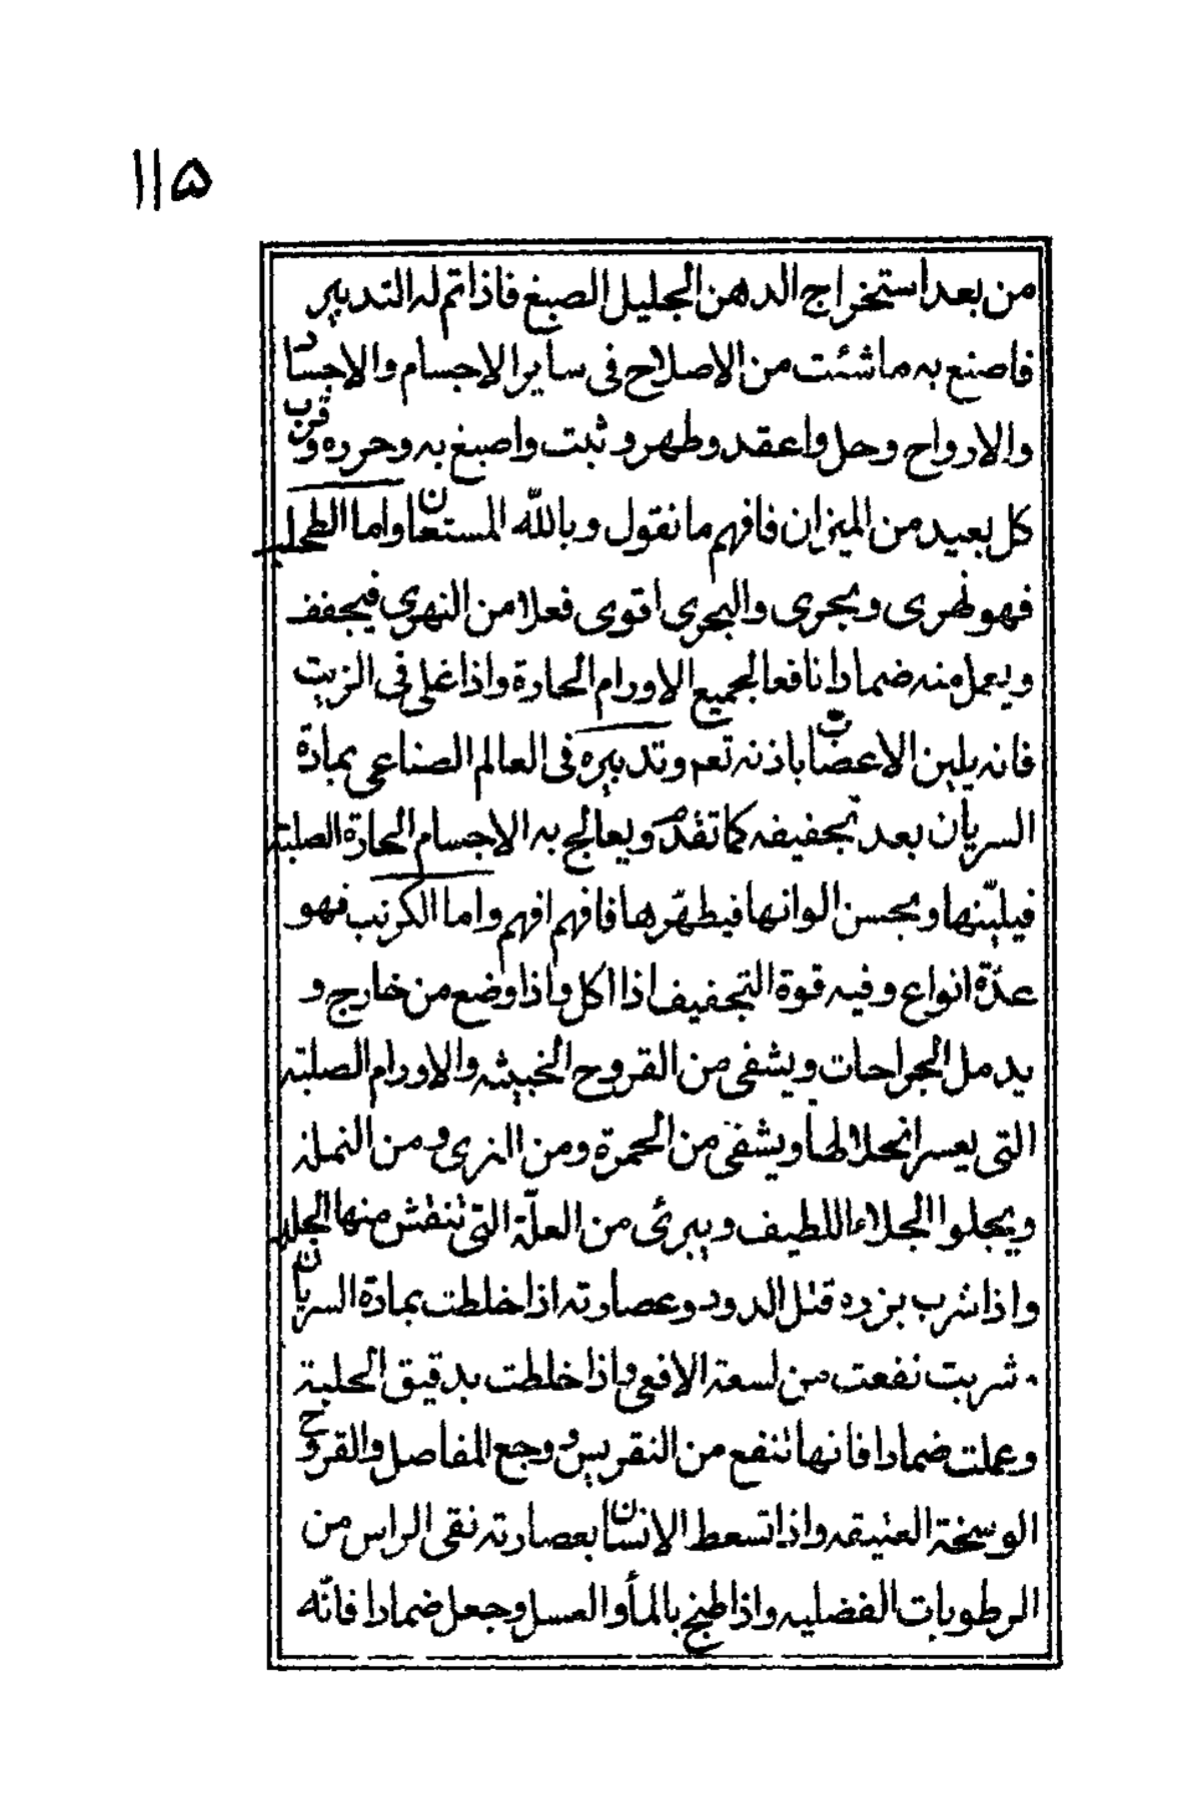 ١١۵
من بعد استخراج الدهن الجليل الصبغ فاذا تم له التدبير
فاصنع به ما شئت من الاصلاح فى ساير الاجسام والاجساد
والارواح وحل واعقد وطهر وثبت واصبغ به وحرره وقرب
كل بعيد من الميزان فافهم ما نقول وبالله المستعان واما الطحلب
فهو نهرى وبحرى والبحرى اقوى فعلا من النهرى فيجفف
ويعمل منه ضمادا نافعا لجميع الاورام الحارة واذا غلى فى الزيت
فانه يلين الاعضاب باذنه تعم وتدبيره فى العالم الصناعى بمادة
السريان بعد تجفيفه كما تقدم ويعالج به الاجسام الحارة الصلبة
فيلينّها ويحسن الوانها فيطهّرها فافهم افهم واما الكرنب فهو
عدّة انواع وفيه قوة التجفيف اذا اكل واذا وضع من خارج و
يدمل الجراحات ويشفى من القروح الخبيثه والاورام الصلبة
التى يعسر انحلالها ويشفى من الحمرة ومن الشرى ومن النملة
ويجلوا الجلاء اللطيف ويبرئ من العلّة التى تنقش منها الجليد
واذا شرب بزره قتل الدود وعصارته اذا خلطت بمادة السريان
شربت نفعت من لسعة الافعى واذا خلطت بدقيق الحلبة
وعملت ضمادا فانها تنفع من النقريس ووجع المفاصل والقروح
الوسخة العتيقه واذا تسعط الانسان بعصارته نقى الراس من
الرطوبات الفضليه واذا طبخ بالمأ والعسل وجعل ضمادا فانّه